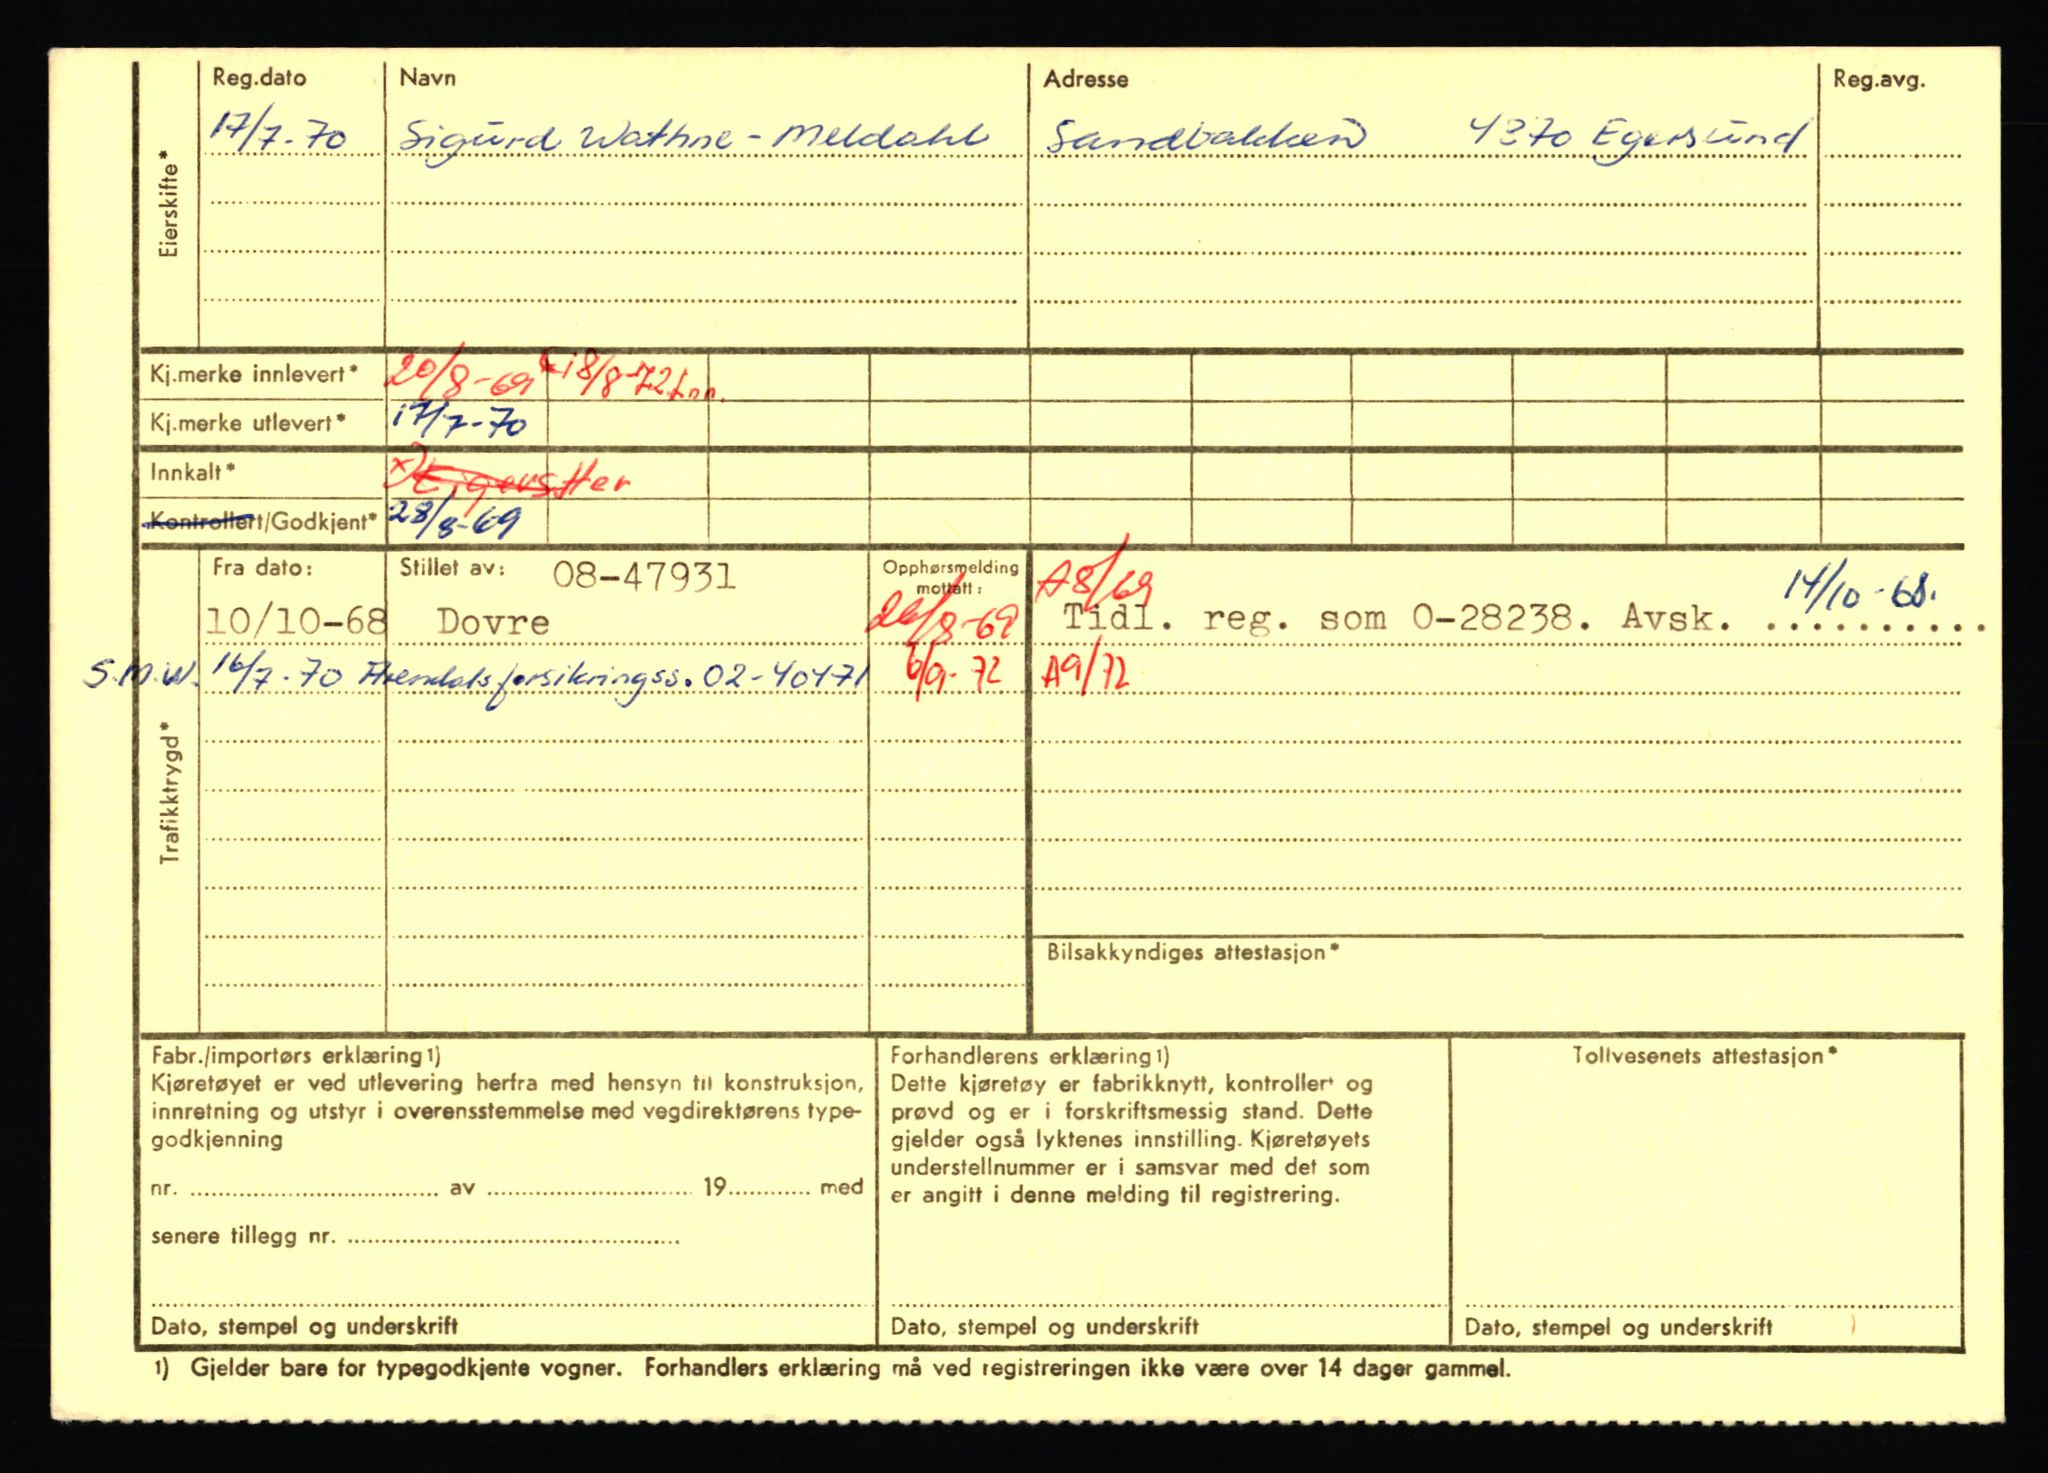 Reg.dato Navn Adresse Reg.avg.
Eierskifte*
17/7-70 Sigurd Wathne-Meldahl Sandbakken 4370 Egersund
Kj.merke innlevert* 20/8-69 18/8-72
Kj.merke utlevert* 17/7-70
Innkalt*
Kontrollert/Godkjent* 28/8-69
Trafikktrygd*
Fra dato: Stillet av: 08-47931 Opphørsmelding mottatt: A8/69 14/10-68.
10/10-68 Dovre 26/8-69 Tidl. reg. som O-28238. Avsk. ..........
S.M.W. 16/7-70 Arendals forsikringss. 02-40471 6/9-72 A9/72
Bilsakkyndiges attestasjon*
Fabr./importørs erklæring1)
Kjøretøyet er ved utlevering herfra med hensyn til konstruksjon,
innretning og utstyr i overensstemmelse med vegdirektørens type-
godkjenning
nr. .......... av .......... 19.......... med
senere tillegg nr. ..........
Dato, stempel og underskrift
Forhandlerens erklæring1)
Dette kjøretøy er fabrikknytt, kontrollert og
prøvd og er i forskriftsmessig stand. Dette
gjelder også lyktenes innstilling. Kjøretøyets
understellnummer er i samsvar med det som
er angitt i denne melding til registrering.
Dato, stempel og underskrift
Tollvesenets attestasjon*
Dato, stempel og underskrift
1) Gjelder bare for typegodkjente vogner. Forhandlers erklæring må ved registreringen ikke være over 14 dager gammel.